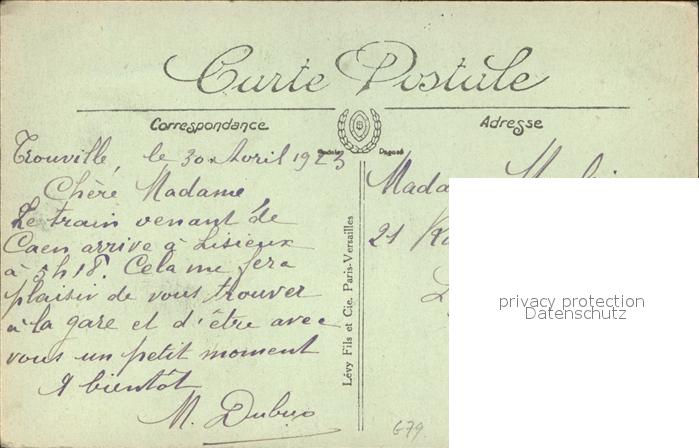 Carte Postale
Correspondance
Adresse
Trouville, le 30 Avril 1923
Chère Madame
Le train venant de
Caen arrive à Lisieux
à 5h18. Cela me fera
plaisir de vous trouver
à la gare et d'être avec
vous un petit moment
A bientôt
M.
Lévy Fils et Cie, Paris-Versailles
21
privacy protection
Datenschutz
679